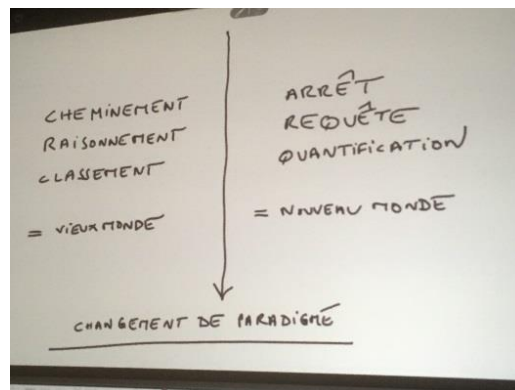 CHEMINEMENT
RAISONNEMENT
CLASSEMENT
= VIEUX MONDE
ARRÊT
REQUÊTE
QUANTIFICATION
= NOUVEAU MONDE
CHANGEMENT DE PARADIGME